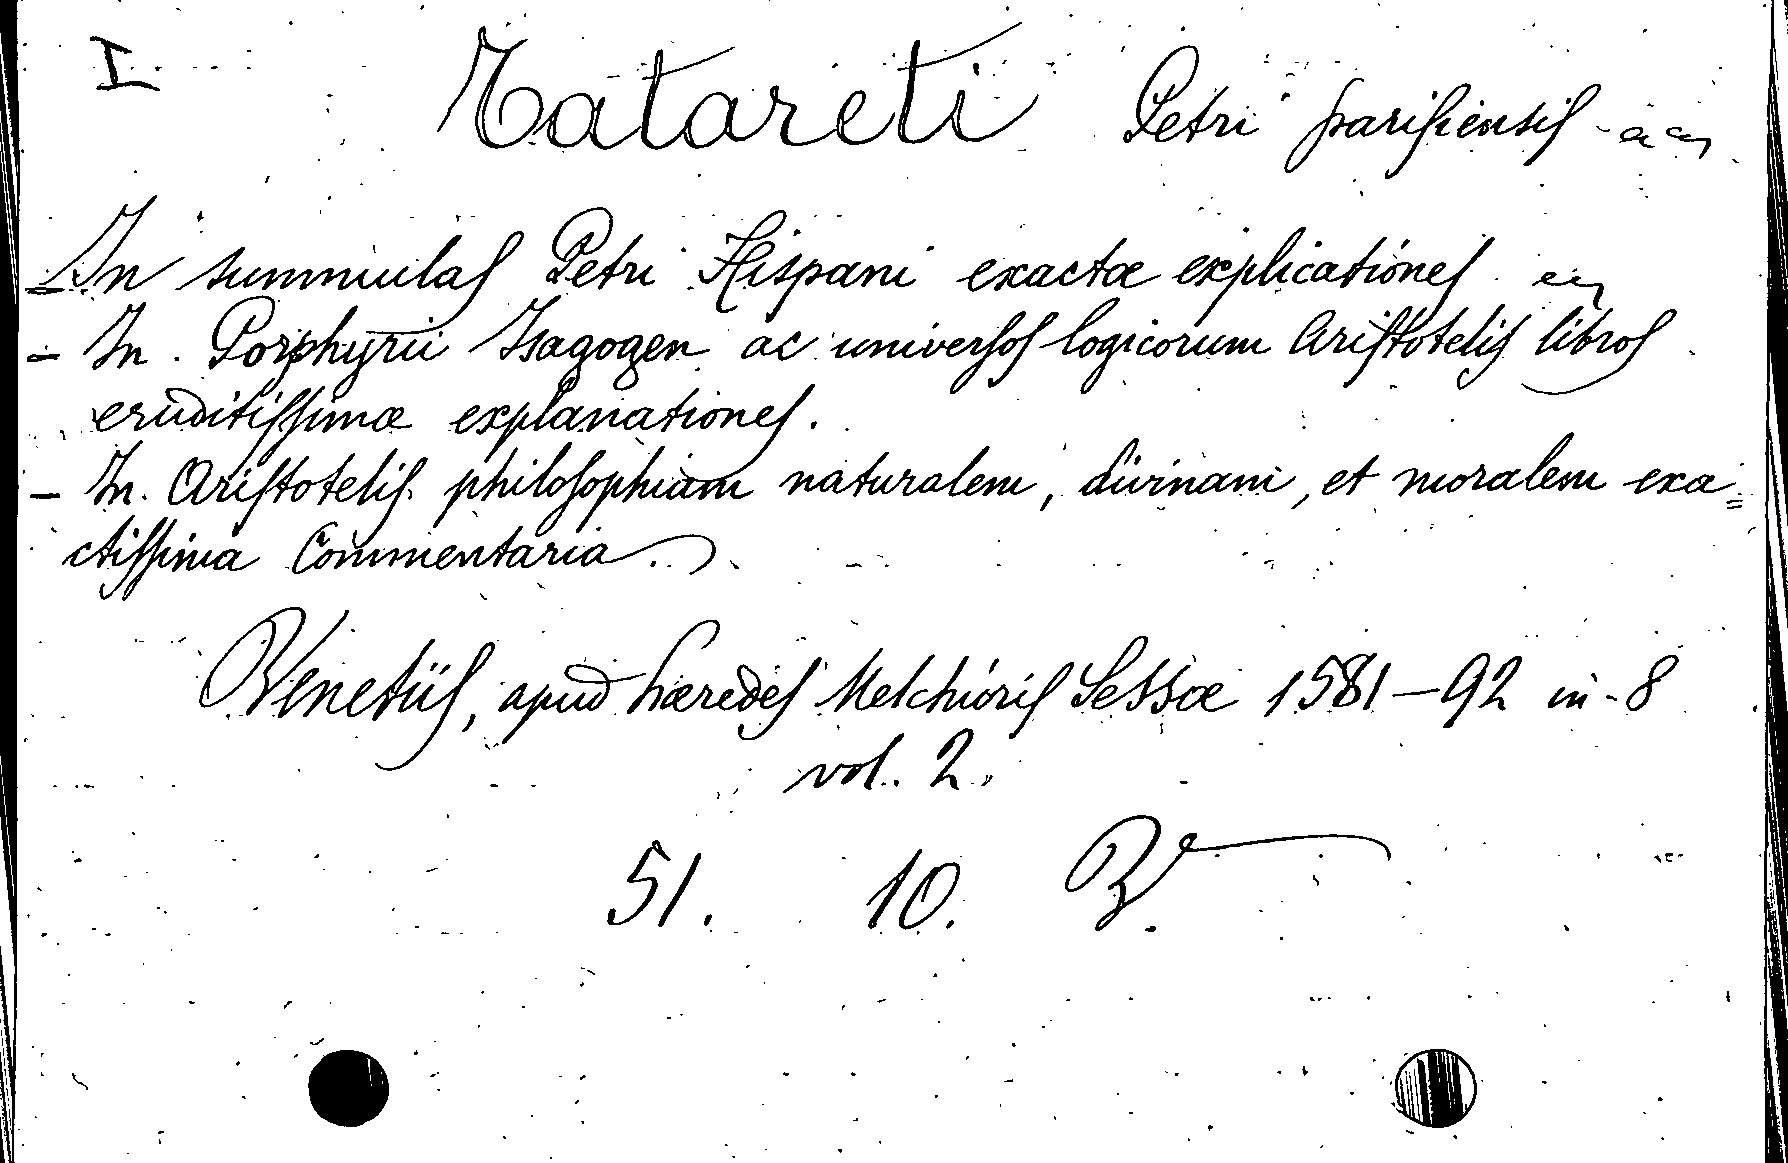 I
Tatareti Petri parisiensis
- In summulas Petri Hispani exactæ explicationes
- In Porphyrii Isagogen ac universos logicorum Aristotelis libros
eruditissimæ explanationes.
- In Aristotelis philosophiam naturalem, divinam, et moralem exa=
ctissima Commentaria.
Venetiis, apud hæredes Melchioris Sessæ 1581-92 in-8
vol. 2.
51. 10.